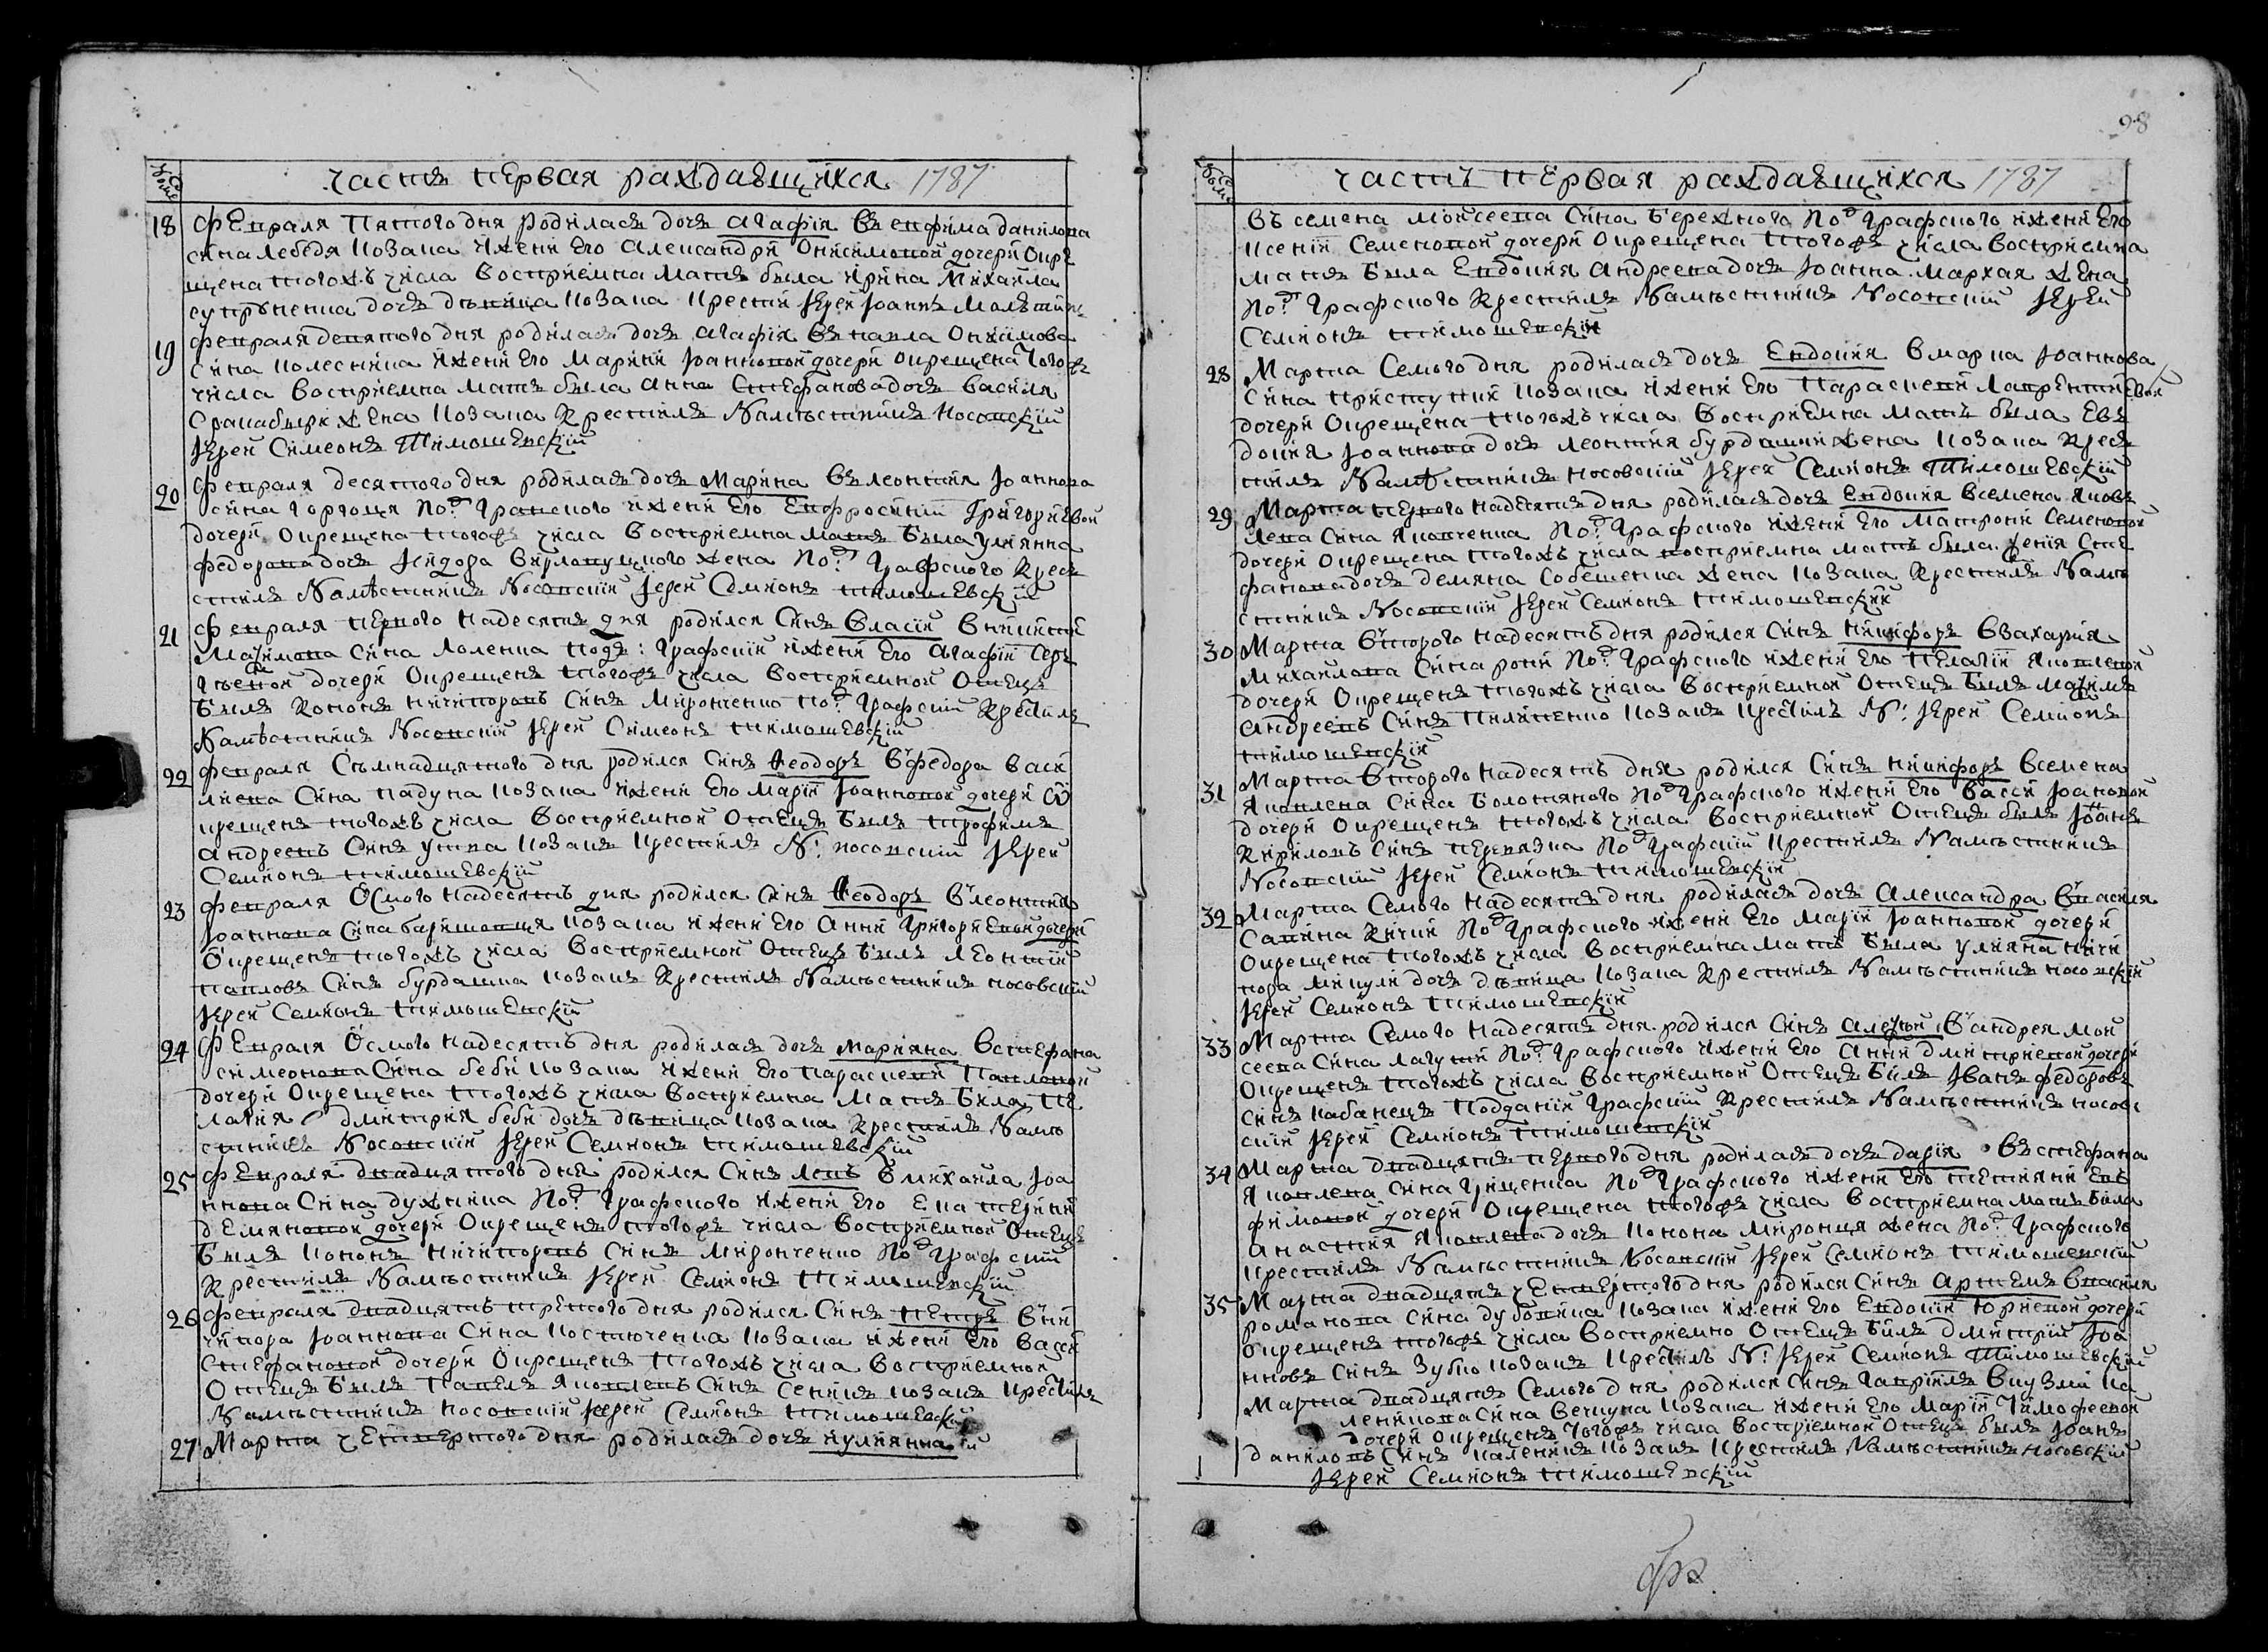 часть первая раждающихся 1787
18 Февраля пятого дня родилась дочь Агафія въ евфима данилова
сина лебедя козака ижени его Александри Онисимовой дочери окре
щена тогожъ числа восприемна мать была ирина Михайла
супруненка дочь дѣвица козака крестил Іерей Іоаннъ
19 февраля девятого дня родилась дочь агафія въ павла
сина колесника ижени его Марини Іоанновой дочери окрещена того жъ
числа восприемна мать была анна Стефанова дочь василя
жена козака крестилъ намѣстникъ носовскій
Іерей Симеонъ Тимошевскій
20 февраля десятого дня родилась дочь Марина въ леонтия Іоаннова
сина горгоця по᷃д графского ижени его Евфросинии Григориевой
дочери окрещена тогожъ числа восприемна мать была улиянна
федорова дочь Ісидора жена по᷃д графского крес
стилъ намѣстникъ носовский Іерей Семионъ тимошевскій
21 февраля первого надесять дня родился синъ Власій
Мазимова сина поде: графский ижени его Агафіи Сер
гѣевой дочери окрещенъ тогожъ числа восприемной отецъ
былъ кононъ ничипоровъ синъ миронченко по᷃д графский крестилъ
намѣстникъ носовский Іерей Симеонъ тимошевскій
22 февраля сѣмнадцятого дня родился синъ Ѳеодоръ въ федора васи
лиева сина падуна козака ижени его марии Іоанновой дочери о
крещенъ тогожъ числа восприемной отецъ былъ трофимъ
андреевъ синъ козакъ крестилъ н: носовский Іерей
Семионъ тимошевскій
23 февраля осмого надесять дня родился синъ Ѳеодоръ в леонтия
Іоаннова сина козака ижени его Анни Григориевой дочери
окрещенъ тогожъ числа восприемной отецъ былъ леонтий
павловъ синъ бурдашка козакъ крестилъ намѣстникъ носовский
Іерей Семионъ тимошевскій
24 февраля осмого надесять дня родилась дочь мариѧна в стефана
симеонова сина беби козака ижени его параскеви павловой
дочери окрещена тогожъ числа восприемна мать была пе
лагия дмитрия беби дочь дѣвица козака крестилъ намѣ
стникъ носовский Іерей Семионъ тимошевскій
25 февраля двадцятого дня родился синъ левъ в михайла Іоа
ннова сина духника по᷃д графского ижени его екатерини
демяновой дочери окрещенъ тогожъ числа восприемной отецъ
былъ кононъ ничипоровъ синъ миронченко по᷃д графский
крестилъ намѣстникъ Іерей Семионъ тимошевскій
26 февраля двадцять третого дня родился синъ петръ в ни
чипора Іоаннова сина костюченка козака ижени его васси
стефановой дочери окрещенъ тогожъ числа восприемной
отецъ былъ павелъ яковлевъ синъ козакъ крестилъ
намѣстникъ носовский Іерей Семионъ тимошевскій
27 Марта четвертого дня родилась дочь иулиянна
98
часть первая раждающихся 1787
въ семена мойсеева сина бережного по᷃д графского ижени его
ксении Семеновой дочери окрещена тогожъ числа восприемна
мать была Евдокия андреева дочь Іоанна жена
по᷃д графского крестилъ намѣстникъ носовский Іерей
Семионъ тимошевскій
28 Марта семого дня родилась дочь Евдокия в марка Іоаннова
сина приступки козака ижени его параскеви лаврентиевой
дочери окрещена тогожъ числа восприемна мать была Ев
докия Іоаннова дочь леонтия бурдашки жена козака крес
тилъ намѣстникъ носовский Іерей Семионъ тимошевский
29 Марта первого надесять дня родилась дочь Евдокия в семена яков
лева сина яковченка по᷃д графского ижени его матрони семеновой
дочери окрещена тогожъ числа восприемна мать была ксения сте
фанова дочь демяна жена козака крестилъ намѣ
стникъ носовский Іерей Семионъ тимошевский
30 Марта второго надесять дня родился синъ никифоръ в захария
михайлова сина по᷃д графского ижени его пелагии яковлевой
дочери окрещенъ тогожъ числа восприемной отецъ былъ мазимъ
андреевъ синъ пилипенко козакъ крестилъ н: Іерей Семионъ
тимошевский
31 Марта второго надесять дня родился синъ никифоръ в семена
яковлева сина болотяного по᷃д графского ижени его васси Іоановой
дочери окрещенъ тогожъ числа восприемной отецъ былъ Іоанъ
кириловъ синъ по᷃д графский крестилъ намѣстникъ
носовский Іерей Семионъ тимошевский
32 Марта семого надесять дня родилась дочь Александра в василя
савина кички по᷃д графского ижени его марии Іоанновой дочери
окрещена тогожъ числа восприемна мать была улияна ничи
пора микули дочь дѣвица козака крестилъ намѣстникъ носовский
Іерей Семионъ тимошевский
33 Марта семого надесять дня родился синъ алезий в андрея мой
сеева сина лагути по᷃д графского ижени его анни дмитриевой дочери
окрещенъ тогожъ числа восприемной отецъ былъ Іванъ федоровъ
синъ кабанецъ подданий графский крестилъ намѣстникъ носов
ский Іерей Семионъ тимошевский
34 Марта двадцять первого дня родилась дочь дарія въ стефана
яковлева сина грищенка по᷃д графского ижени его тетияни ев
фимовой дочери окрещена тогожъ числа восприемна мать была
анастия яковлева дочь конона миронця жена по᷃д графского
крестилъ намѣстникъ носовский Іерей Семионъ тимошевский
35 Марта двадцять четвертого дня родился синъ артемъ в василя
романова сина дубовика козака ижени его Евдокии юриевой дочери
окрещенъ тогожъ числа восприемно отецъ былъ дмитрий Іоа
нновъ синъ зубко козакъ крестилъ н: Іерей Семионъ тимошевский
Марта двадцять семого дня родился синъ гавриилъ в кузми ка
леникова сина козака ижени его марии тимофеевой
дочери окрещенъ тогожъ числа восприемной отецъ былъ Іоанъ
даниловъ синъ каленикъ козакъ крестилъ намѣстникъ носовский
Іерей Семионъ тимошевский